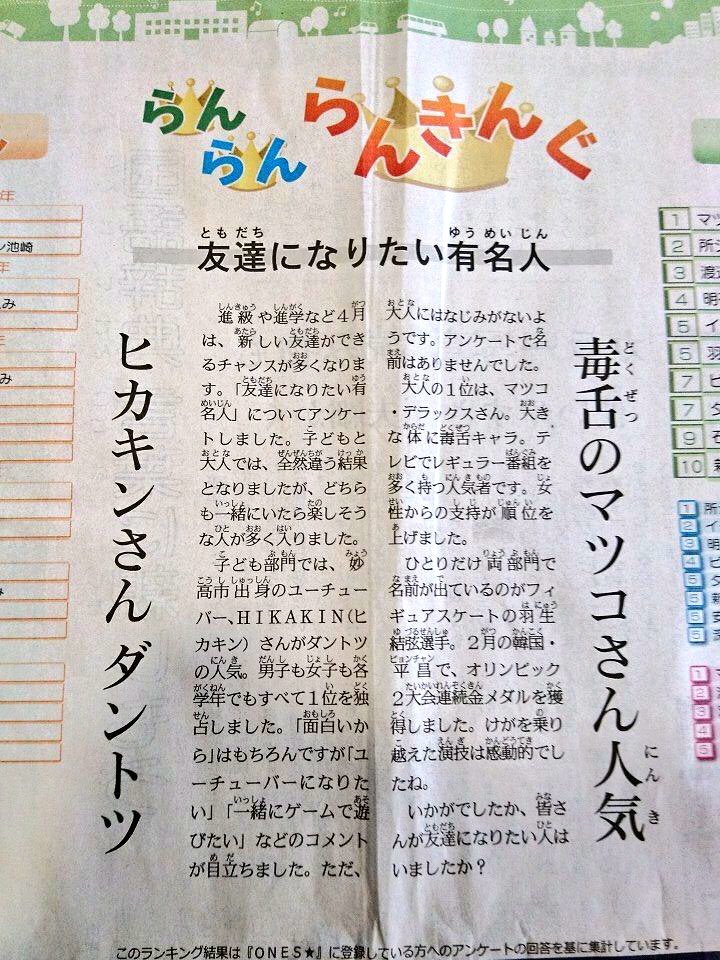 らんらん らんきんぐ
友達になりたい有名人
ヒカキンさんダントツ
毒舌のマツコさん人気
進級や進学など4月
は、新しい友達ができ
るチャンスが多くなりま
す。「友達になりたい有
名人」についてアンケー
トしました。子どもと
大人では、全然違う結果
となりましたが、どちら
も一緒にいたら楽しそう
な人が多く入りました。
子ども部門では、妙
高市出身のユーチュー
バー、HIKAKIN(ヒ
カキン)さんがダントツ
の人気。男子も女子も各
学年でもすべて1位を独
占しました。「面白いか
ら」はもちろんですが「ユ
ーチューバーになりた
い」「一緒にゲームで遊
びたい」などのコメント
が目立ちました。ただ、
大人にはなじみがないよ
うです。アンケートで名
前はありませんでした。
大人の1位は、マツコ
・デラックスさん。大き
な体に毒舌キャラ。テ
レビでレギュラー番組を
多く持つ人気者です。女
性からの支持が順位を
上げました。
ひとりだけ両部門で
名前が出ているのがフィ
ギュアスケートの羽生
結弦選手。2月の韓国・
平昌で、オリンピック
2大会連続金メダルを獲
得しました。けがを乗り
越えた演技は感動的でし
たね。
いかがでしたか、皆さ
んが友達になりたい人は
いましたか?
このランキング結果は『ONES★』に登録している方へのアンケートの回答を基に集計しています。
年
ン池崎
年
み
1 マツ
2 所ジ
3 渡辺
4 明
5 イ
5 羽
7 ピ
7 タ
9 石
10 新
1 所
2 イ
3 明
4 ピ
5 タ
5 新
5 安
5
1 マ
2
3
4
5